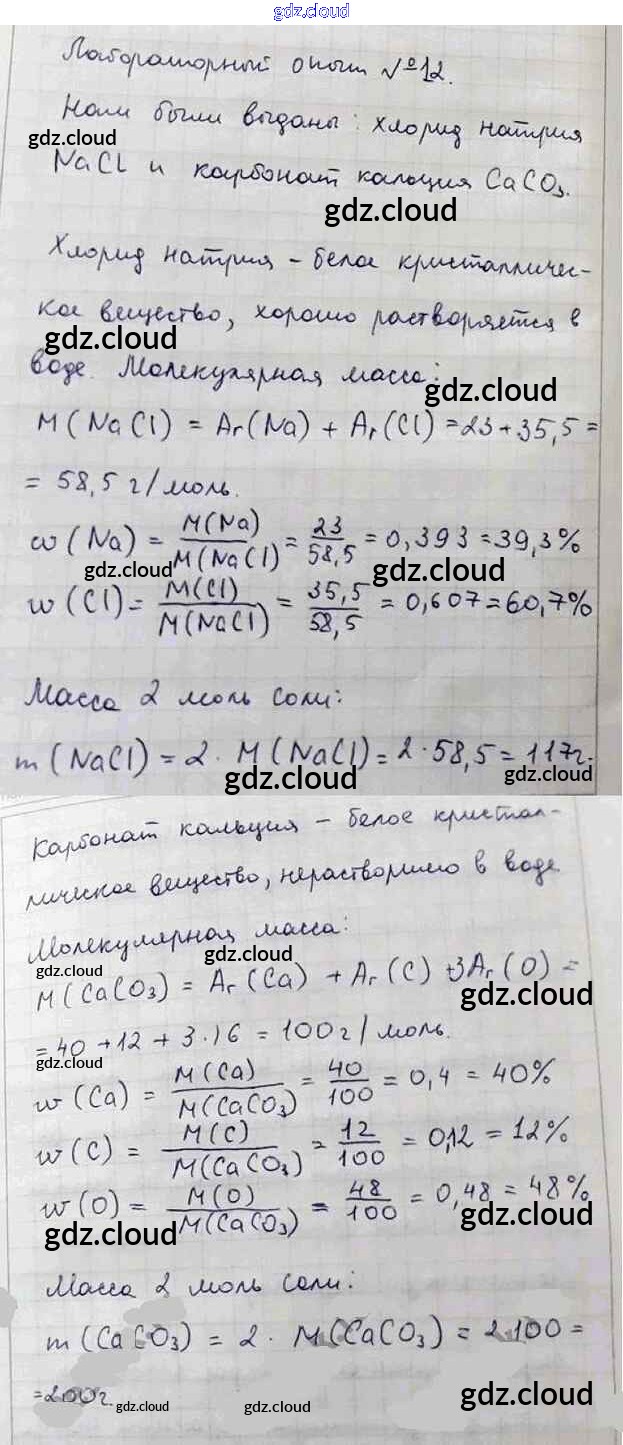 gdz.cloud
Лабораторный опыт №12.
Нам были выданы: хлорид натрия
gdz.cloud
NaCl и карбонат кальция CaCO₃.
gdz.cloud
Хлорид натрия – белое кристалличес-
кое вещество, хорошо растворяется в
gdz.cloud
воде. Молекулярная масса:
gdz.cloud
M(NaCl) = Ar(Na) + Ar(Cl) = 23 + 35,5 =
= 58,5 г/моль.
w(Na) = M(Na)/M(NaCl) = 23/58,5 = 0,393 = 39,3%
gdz.cloud gdz.cloud
w(Cl) = M(Cl)/M(NaCl) = 35,5/58,5 = 0,607 = 60,7%
Масса 2 моль соли:
m(NaCl) = 2 · M(NaCl) = 2 · 58,5 = 117г.
gdz.cloud gdz.cloud
Карбонат кальция – белое кристал-
лическое вещество, нерастворимо в воде
Молекулярная масса:
gdz.cloud gdz.cloud
M(CaCO₃) = Ar(Ca) + Ar(C) + 3Ar(O) =
gdz.cloud
= 40 + 12 + 3·16 = 100 г/моль.
gdz.cloud
w(Ca) = M(Ca)/M(CaCO₃) = 40/100 = 0,4 = 40%
w(C) = M(C)/M(CaCO₃) = 12/100 = 0,12 = 12%
w(O) = M(O)/M(CaCO₃) = 48/100 = 0,48 = 48%
gdz.cloud gdz.cloud
Масса 2 моль соли:
m(CaCO₃) = 2 · M(CaCO₃) = 2·100 =
= 200г.
gdz.cloud gdz.cloud gdz.cloud